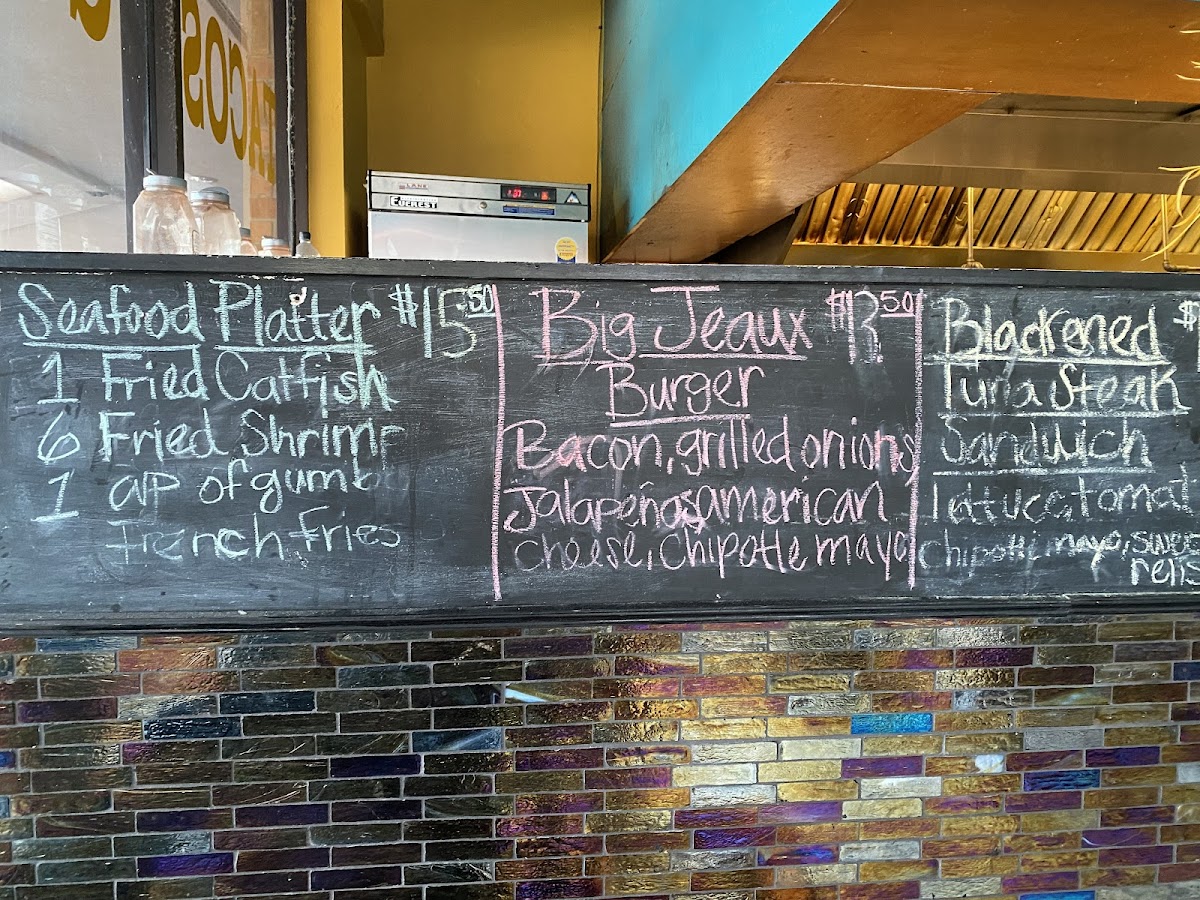 TACOS
EVEREST
Seafood Platter $15.50
1 Fried Catfish
6 Fried Shrimp
1 cup of gumb
French fries
Big Jeaux $13.50
Burger
Bacon, grilled onions
Jalapeños american
cheese, chipotle mayo
Blackened $1
Tuna Steak
Sandwich
lettuce, tomat
chipotle mayo, swee
relis